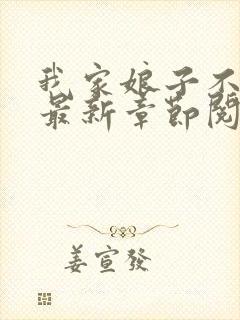 我家娘子不
最新章節閱
姜宣發